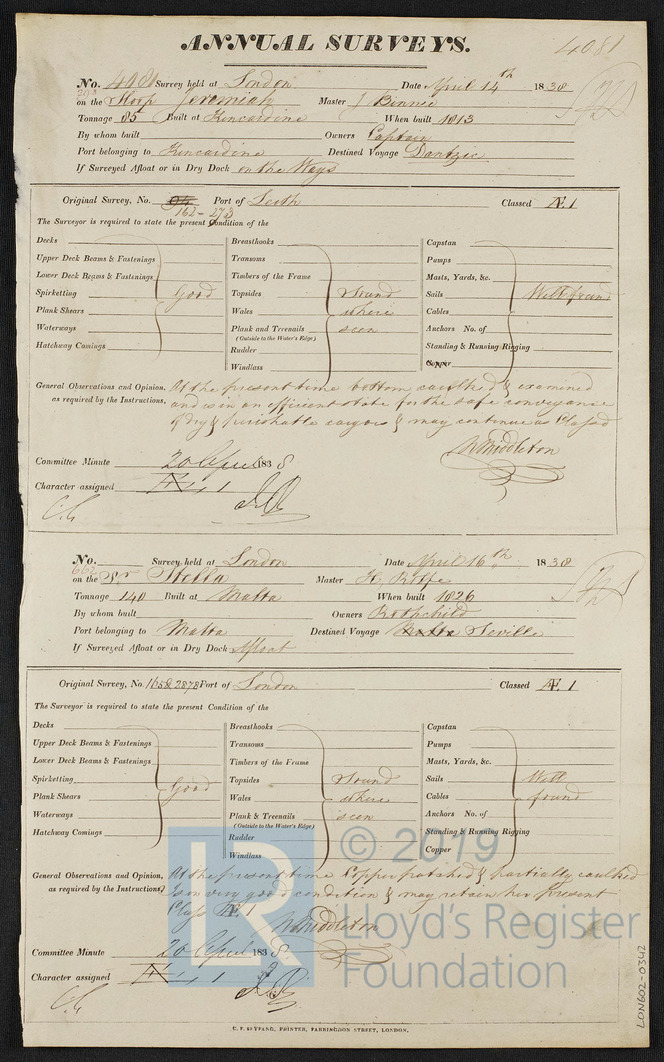 ANNUAL SURVEYS.
4081
No. 4081 Survey held at London Date April 14th 1838
on the Sloop Jeremiah Master J Binnie
Tonnage 85 Built at Kincardine When built 1813
By whom built Owners Captain
Port belonging to Kincardine Destined Voyage Dantzic
If Surveyed Afloat or in Dry Dock on the Ways
Original Survey, No. 94 Port of Leith Classed Æ 1
162-273
The Surveyor is required to state the present Condition of the
Decks Breasthooks Capstan
Upper Deck Beams & Fastenings Transoms Pumps
Lower Deck Beams & Fastenings Timbers of the Frame Masts, Yards, &c.
Spirketting Good Topsides Sound Sails Well found
Plank Shears Wales where Cables
Waterways Plank and Treenails seen Anchors No. of
(Outside to the Water's Edge)
Hatchway Comings Rudder Standing & Running Rigging
Windlass Copper
General Observations and Opinion, At the present time bottom caulked & examined
as required by the Instructions. and is in an efficient state for the safe conveyance
of dry & perishable cargoes & may continue as Classed
W Middleton
Committee Minute 20 April 1838
Character assigned Æ 1
No. Survey held at London Date April 16th 1838
662
on the Sr Stella Master H. Rolfe
Tonnage 140 Built at Malta When built 1826
By whom built Owners Rothschild
Port belonging to Malta Destined Voyage Malta Seville
If Surveyed Afloat or in Dry Dock Afloat
Original Survey, No. 165 & 2878 Port of London Classed Æ 1
The Surveyor is required to state the present Condition of the
Decks Breasthooks Capstan
Upper Deck Beams & Fastenings Transoms Pumps
Lower Deck Beams & Fastenings Timbers of the Frame Masts, Yards, &c.
Spirketting Good Topsides Sound Sails Well
Plank Shears Wales where Cables found
Waterways Plank & Treenails seen Anchors No. of
(Outside to the Water's Edge)
Hatchway Comings Rudder Standing & Running Rigging
Windlass Copper
General Observations and Opinion, At the present time Copper patched & partially caulked
as required by the Instructions) is in very good condition & may retain her Present
Class Æ 1
W Middleton
Committee Minute 20 April 1838
Character assigned Æ 1
© 2019
LR
Lloyd's Register
Foundation
LON602-0342
PRINTER, FARRINGDON STREET, LONDON.